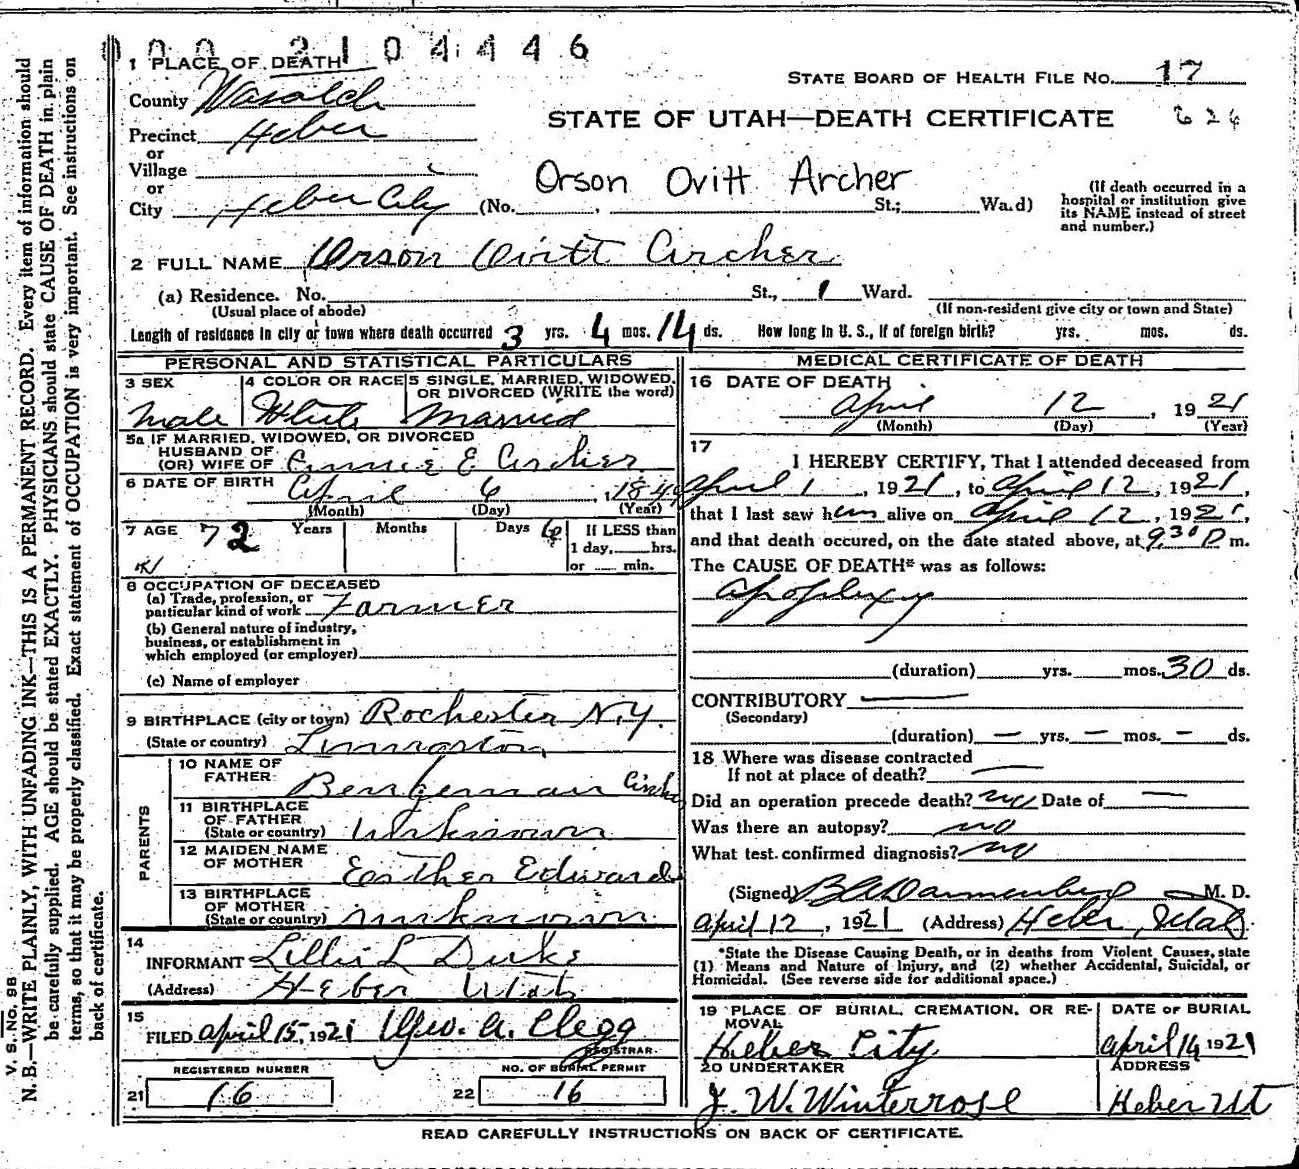 000 2104446
1 PLACE OF DEATH
STATE BOARD OF HEALTH FILE NO. 17
County Wasatch
STATE OF UTAH—DEATH CERTIFICATE 626
Precinct Heber
or
Village
or
Orson Ovitt Archer
City Heber City (No. , St.; Wa.d)
(If death occurred in a
hospital or institution give
its NAME instead of street
and number.)
2 FULL NAME Orson Ovitt Archer
(a) Residence. No. St., 1 Ward.
(Usual place of abode) (If non-resident give city or town and State)
Length of residence in city or town where death occurred 3 yrs. 4 mos. 14 ds. How long in U. S., if of foreign birth? yrs. mos. ds.
PERSONAL AND STATISTICAL PARTICULARS
3 SEX 4 COLOR OR RACE 5 SINGLE, MARRIED, WIDOWED,
OR DIVORCED (WRITE the word)
Male White Married
5a IF MARRIED, WIDOWED, OR DIVORCED
HUSBAND OF
(OR) WIFE OF Annie E Archer
6 DATE OF BIRTH April 6, 1849
(Month) (Day) (Year)
7 AGE 72 Years Months Days 6 If LESS than
1 day, hrs.
or min.
8 OCCUPATION OF DECEASED
(a) Trade, profession, or
particular kind of work Farmer
(b) General nature of industry,
business, or establishment in
which employed (or employer)
(c) Name of employer
9 BIRTHPLACE (city or town) Rochester N.Y.
(State or country)
PARENTS
10 NAME OF
FATHER Benjeman Archer
11 BIRTHPLACE
OF FATHER
(State or country) Unknown
12 MAIDEN NAME
OF MOTHER Easther Edwards
13 BIRTHPLACE
OF MOTHER
(State or country) Unknown
14
INFORMANT Lillis L Duke
(Address) Heber Utah
15
FILED April 15, 1921 Geo. A. Clegg
REGISTRAR.
REGISTERED NUMBER NO. OF BURIAL PERMIT
21 16 22 16
MEDICAL CERTIFICATE OF DEATH
16 DATE OF DEATH
April 12, 1921
(Month) (Day) (Year)
17
I HEREBY CERTIFY, That I attended deceased from
April 1, 1921, to April 12, 1921,
that I last saw him alive on April 12, 1921,
and that death occured, on the date stated above, at 9:30 P m.
The CAUSE OF DEATH* was as follows:
Apoplexy
(duration) yrs. mos. 30 ds.
CONTRIBUTORY —
(Secondary)
(duration) — yrs. — mos. — ds.
18 Where was disease contracted
If not at place of death? —
Did an operation precede death? no Date of —
Was there an autopsy? no
What test confirmed diagnosis? no
(Signed) Dannenberg M. D.
April 12, 1921 (Address) Heber, Utah
*State the Disease Causing Death, or in deaths from Violent Causes, state
(1) Means and Nature of Injury, and (2) whether Accidental, Suicidal, or
Homicidal. (See reverse side for additional space.)
19 PLACE OF BURIAL, CREMATION, OR RE-
MOVAL
DATE OF BURIAL
Heber City April 14 1921
20 UNDERTAKER ADDRESS
J. W. Winterrose Heber Ut
READ CAREFULLY INSTRUCTIONS ON BACK OF CERTIFICATE.
V. S. No. 98
N. B.—WRITE PLAINLY, WITH UNFADING INK—THIS IS A PERMANENT RECORD. Every item of information should
be carefully supplied. AGE should be stated EXACTLY. PHYSICIANS should state CAUSE OF DEATH in plain
terms, so that it may be properly classified. Exact statement of OCCUPATION is very important. See instructions on
back of certificate.